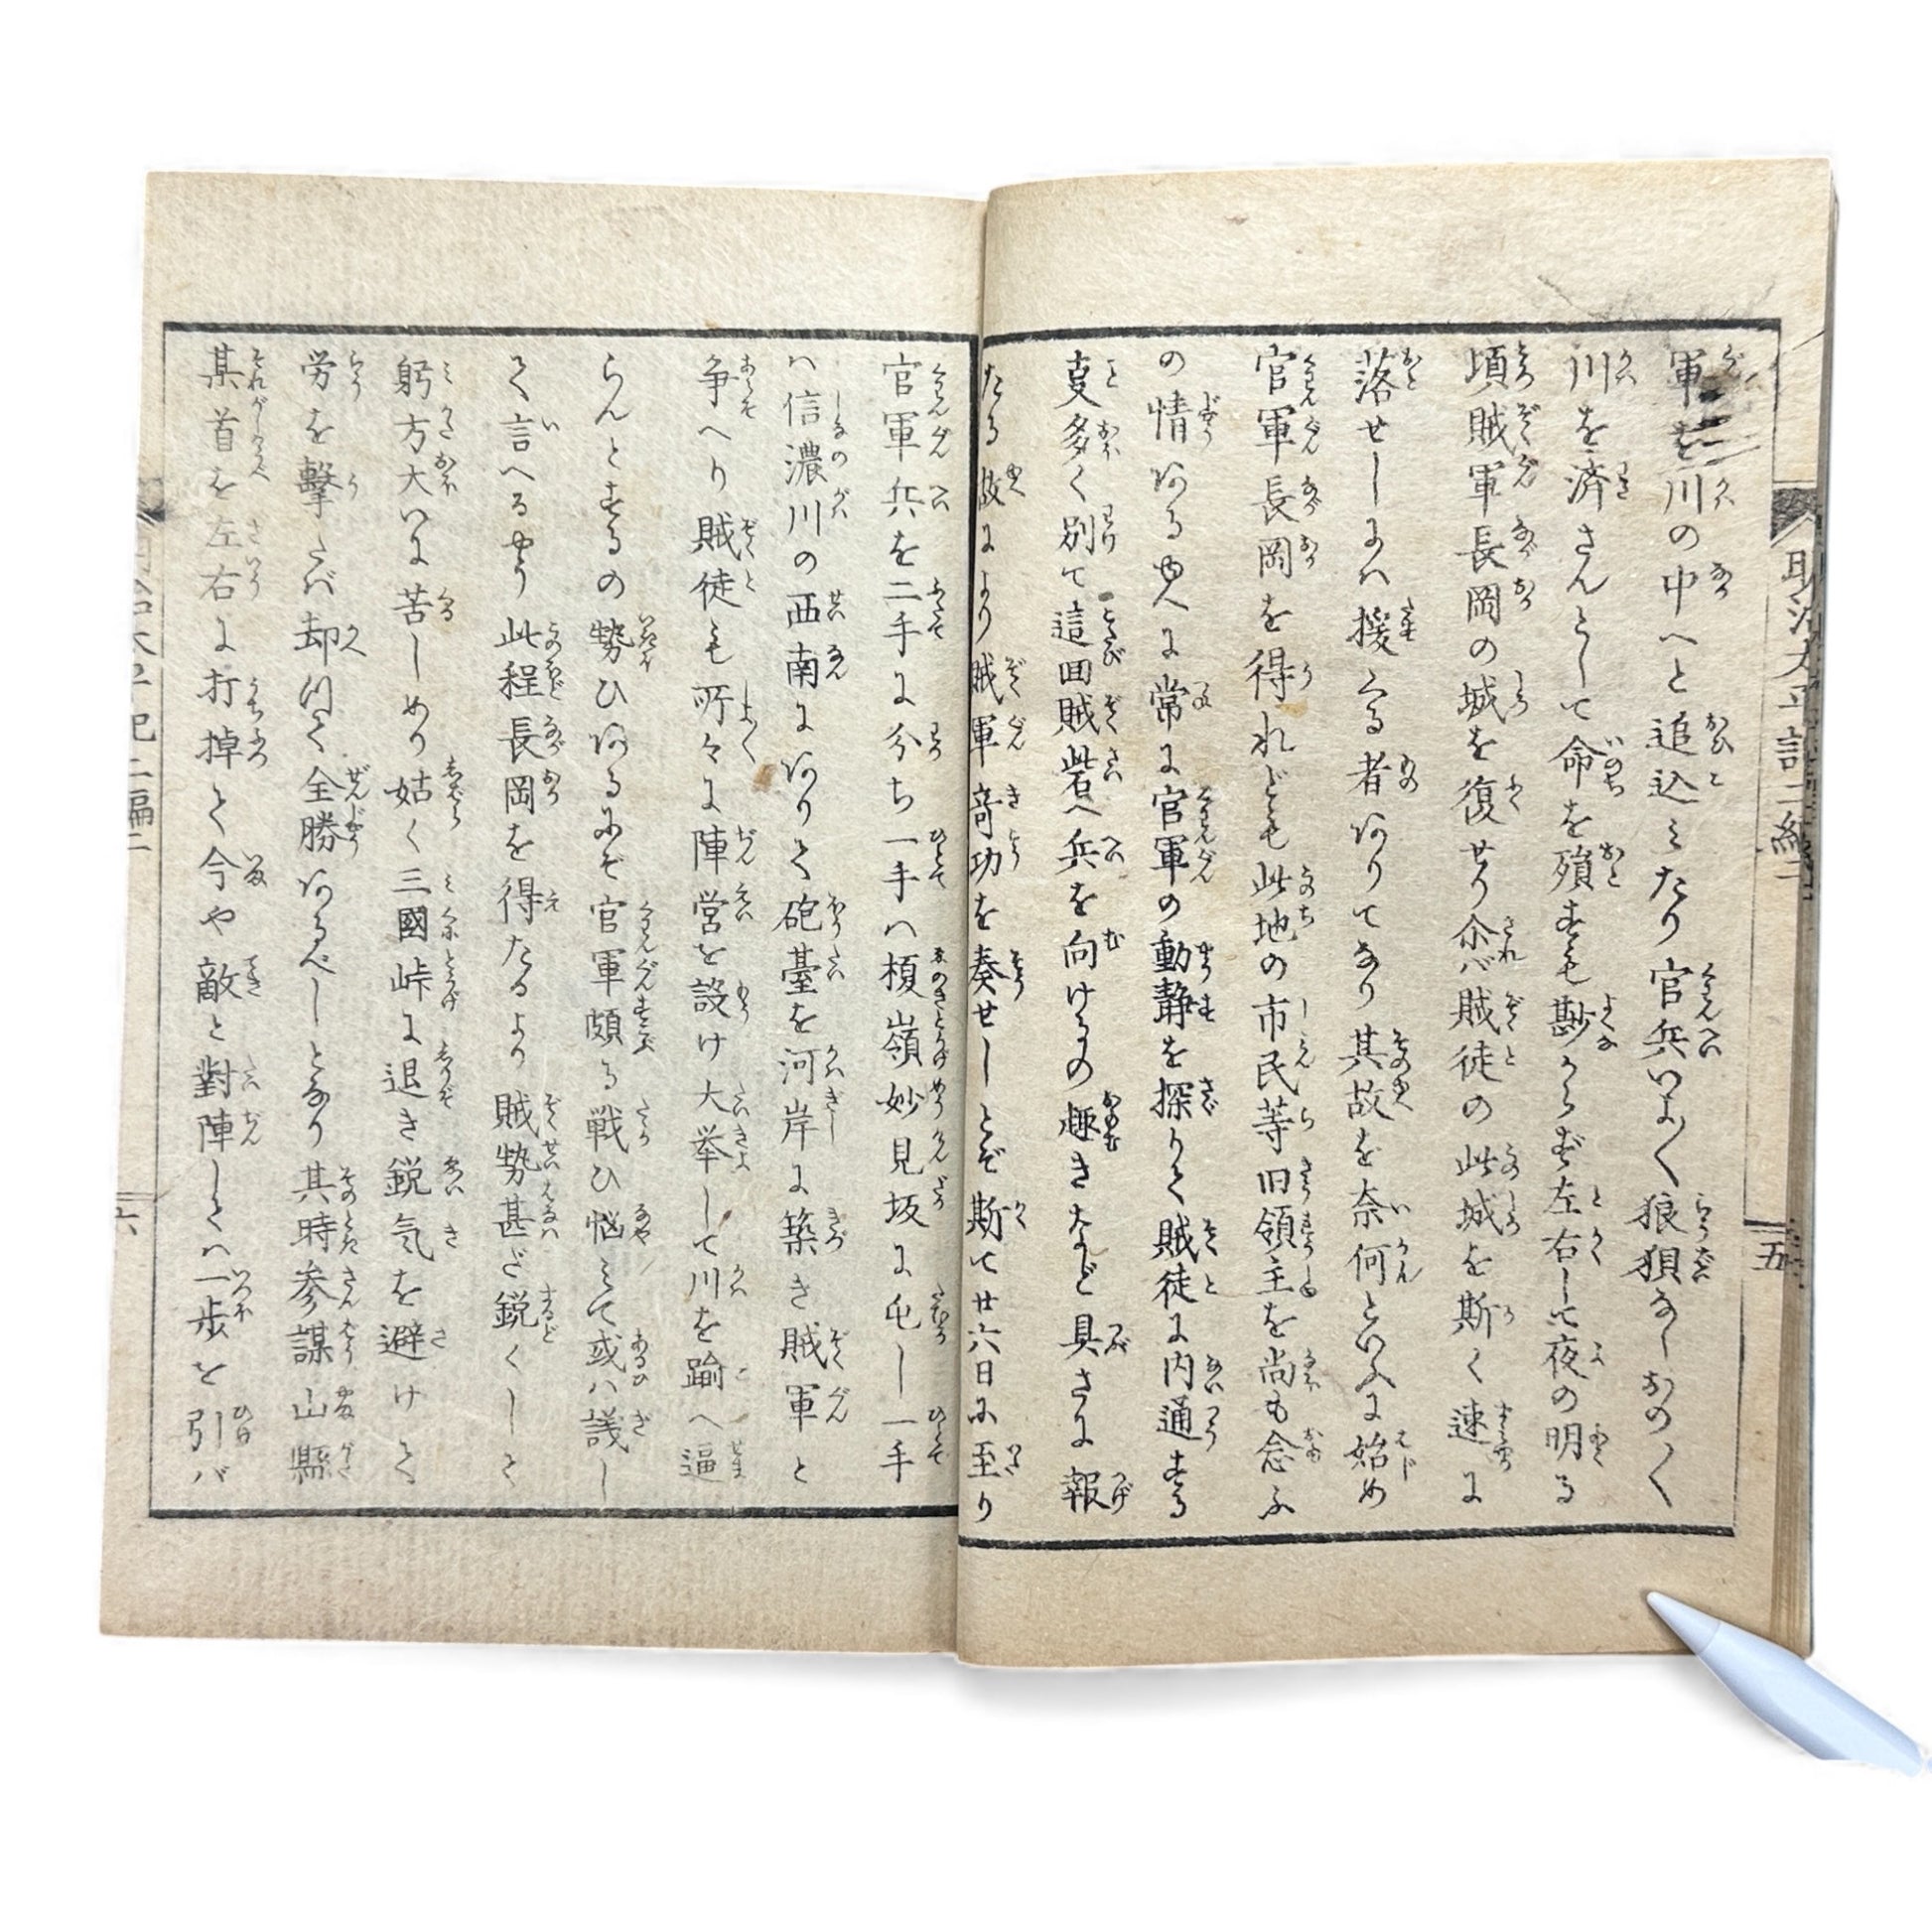 軍を川の中へと追込ミたり官兵いよ〱狼狽なしおの〱
川を済さんとして命を殞すも尠からず左右して夜の明る
頃賊軍長岡の城を復せり尒バ賊徒の此城を斯く速に
落せしよハ援くる者ありてなり其故を奈何といふに始め
官軍長岡を得れども此地の市民等旧領主を尚も念ふ
の情ある由へに常に官軍の動静を探りて賊徒に内通する
叓多く別て這回賊砦へ兵を向けるの趣きなど具さに報
たる故により賊軍竒功を奏せしとぞ斯て廿六日に至り
官軍兵を二手に分ち一手ハ榎嶺妙見坂に屯し一手
ハ信濃川の西南にありて砲臺を河岸に築き賊軍と
争へり賊徒も所々に陣営を設け大挙して川を踰へ逼
らんとするの勢ひあるにぞ官軍頗る戦ひ悩ミて或ハ議し
て言へるやう此程長岡を得たるより賊勢甚だ鋭くして
躬方大いに苦しめり姑く三國峠に退き鋭気を避けて
労を撃たバ却つて全勝あるべしとなり其時参謀山縣
某首を左右に打掉て今や敵と對陣してハ一歩を引バ
明治太平記二編二
五
明治太平記二編二
六